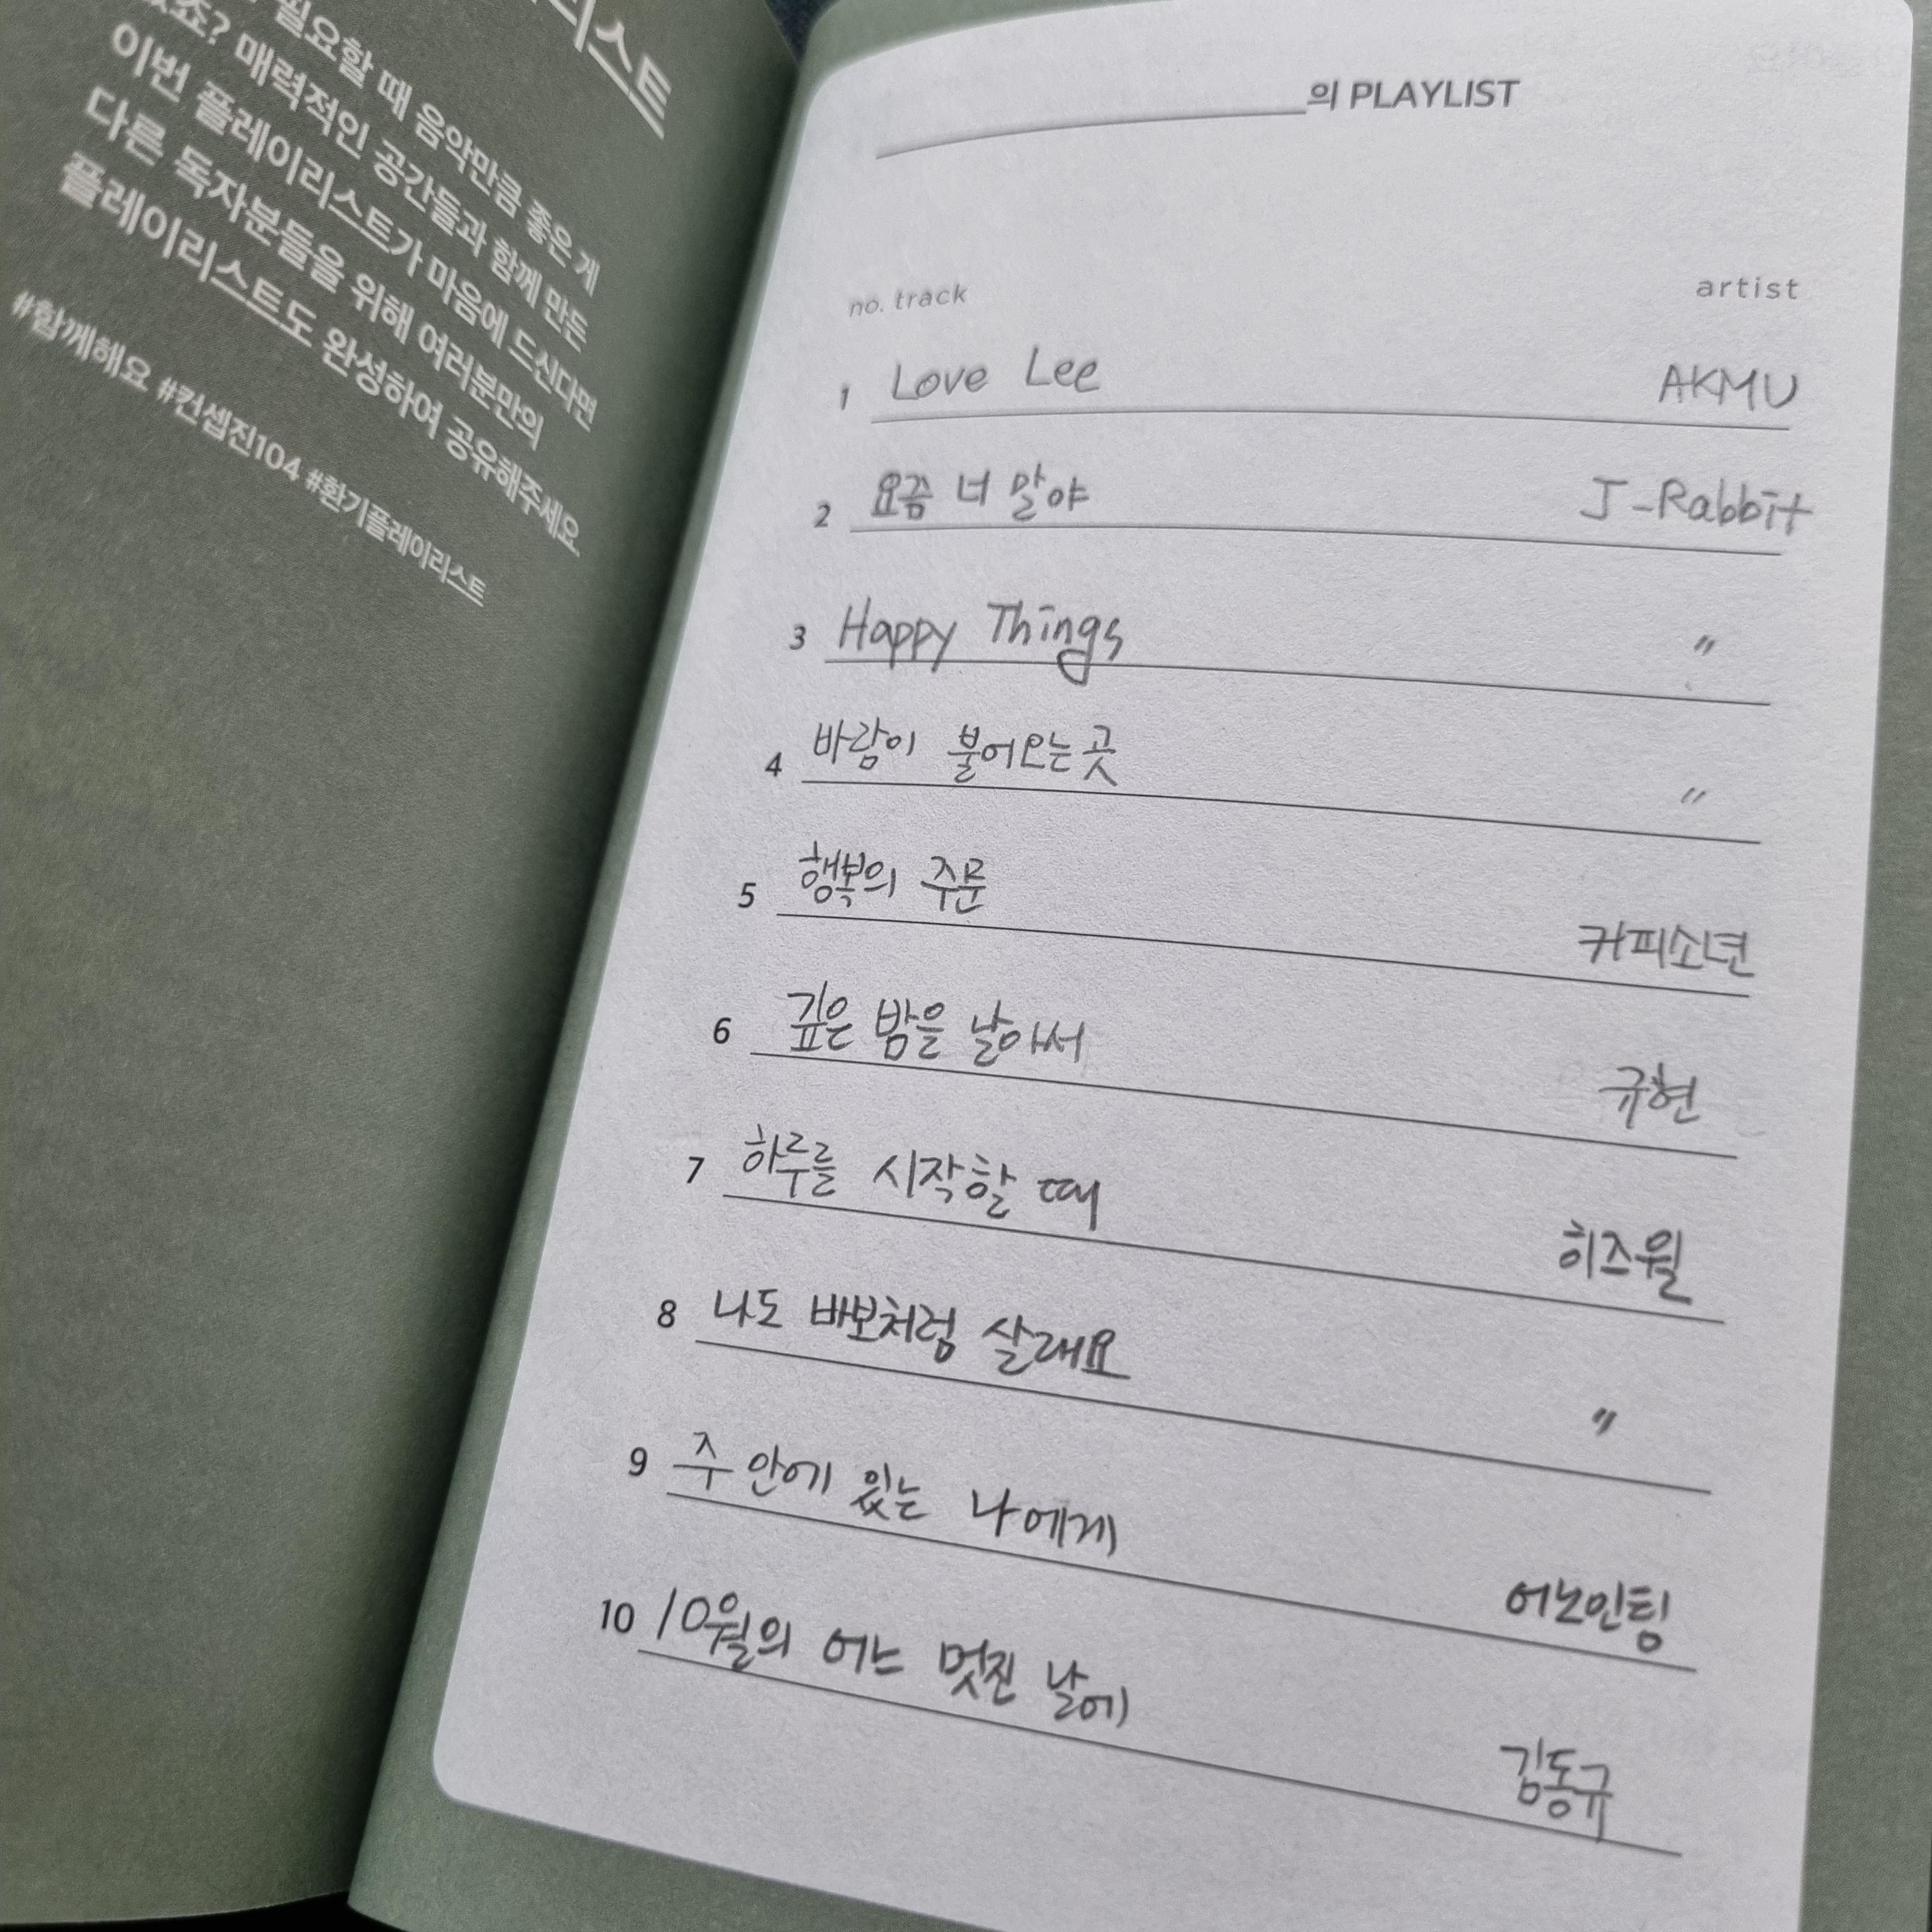 리스트
필요할 때 음악만큼 좋은 게
죠? 매력적인 공간들과 함께 만든
이번 플레이리스트가 마음에 드신다면
다른 독자분들을 위해 여러분만의
플레이리스트도 완성하여 공유해주세요.
#함께해요 #컨셉진104 #환기플레이리스트
의 PLAYLIST
no. track artist
1 Love Lee AKMU
2 요즘 너 말야 J-Rabbit
3 Happy Things "
4 바람이 불어오는 곳 "
5 행복의 주문 커피소년
6 깊은 밤을 날아서 규현
7 하루를 시작할 때 히즈윌
8 나도 바보처럼 살래요 "
9 주 안에 있는 나에게 어노인팅
10 10월의 어느 멋진 날에 김동규